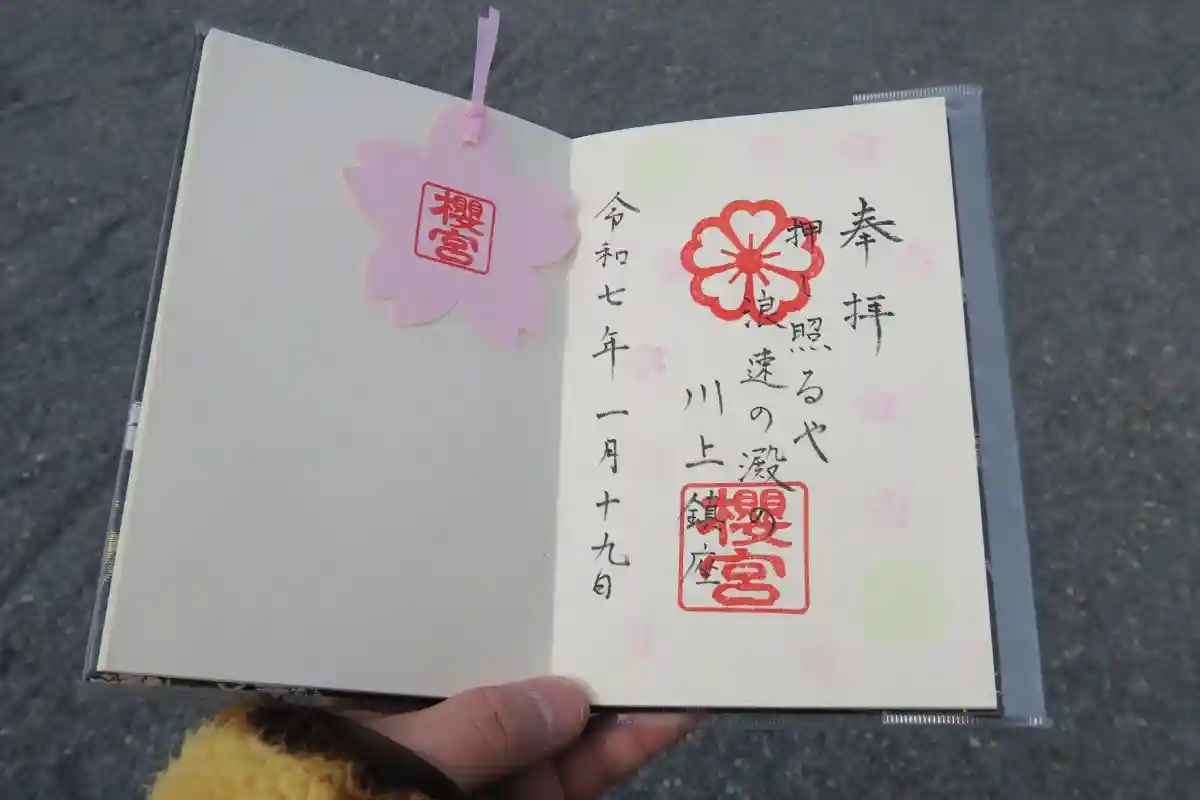 奉拝
押し照るや
浪速の澱の
川上鎮座
櫻宮
令和七年一月十九日
櫻宮